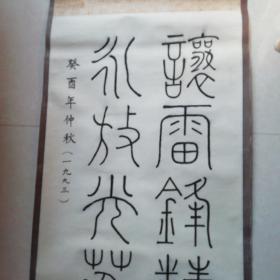 讓雷鋒精
永放光芒
癸酉年仲秋(一九九三)